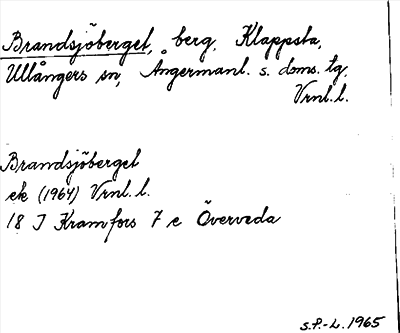 Brandsjöberget, berg, Klappsta,
Ullångers sn, Ångermanl. s. doms. tg,
Vrnl.l.
Brandsjöberget
ek (1964) Vrnl.l.
18 J Kramfors 7 e Överveda
S.P.-L. 1965